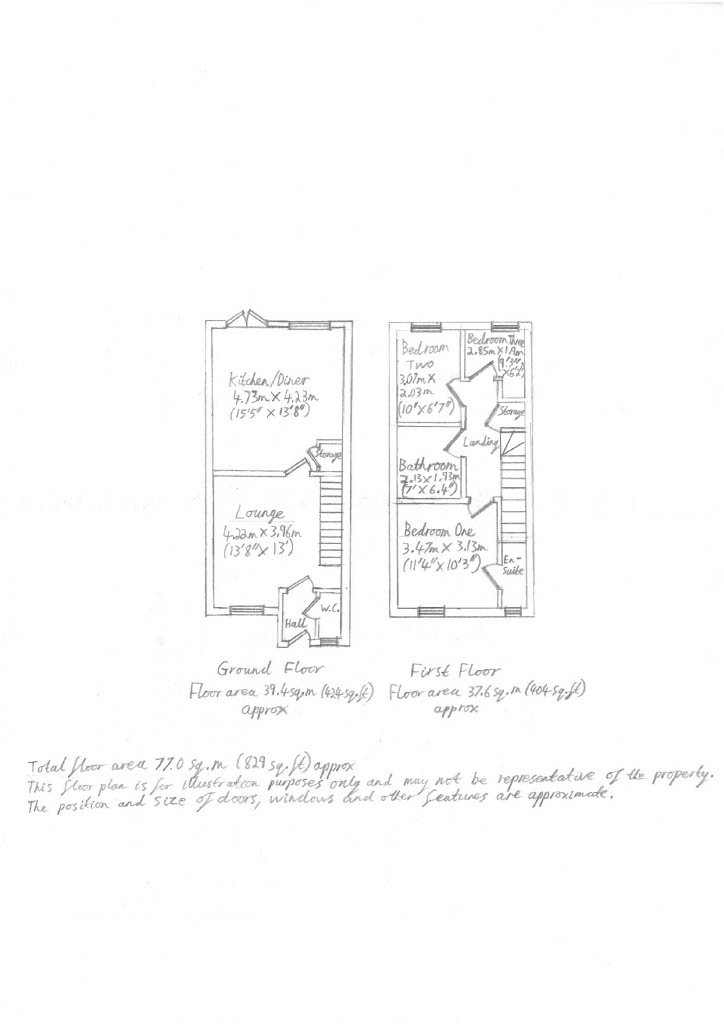 Kitchen/Diner
4.73m X 4.23m
(15'5" X 13'8")
Storage
Lounge
4.22m X 3.96m
(13'8" X 13')
Hall
W.C.
Ground Floor
Floor area 39.4 sq.m (424 sq.ft)
approx
Bedroom
Two
3.07m X
2.03m
(10' X 6'7")
Bedroom Three
2.85m X 1.9m
(9'3"
X6'2")
Storage
Landing
Bathroom
2.13 X 1.93m
(7' X 6.4")
Bedroom One
3.47m X 3.13m
(11'4" X 10'3")
En-
Suite
First Floor
Floor area 37.6 sq.m (404 sq.ft)
approx
Total floor area 77.0 sq.m (829 sq.ft) approx
This floor plan is for illustration purposes only and may not be representative of the property.
The position and size of doors, windows and other features are approximate.